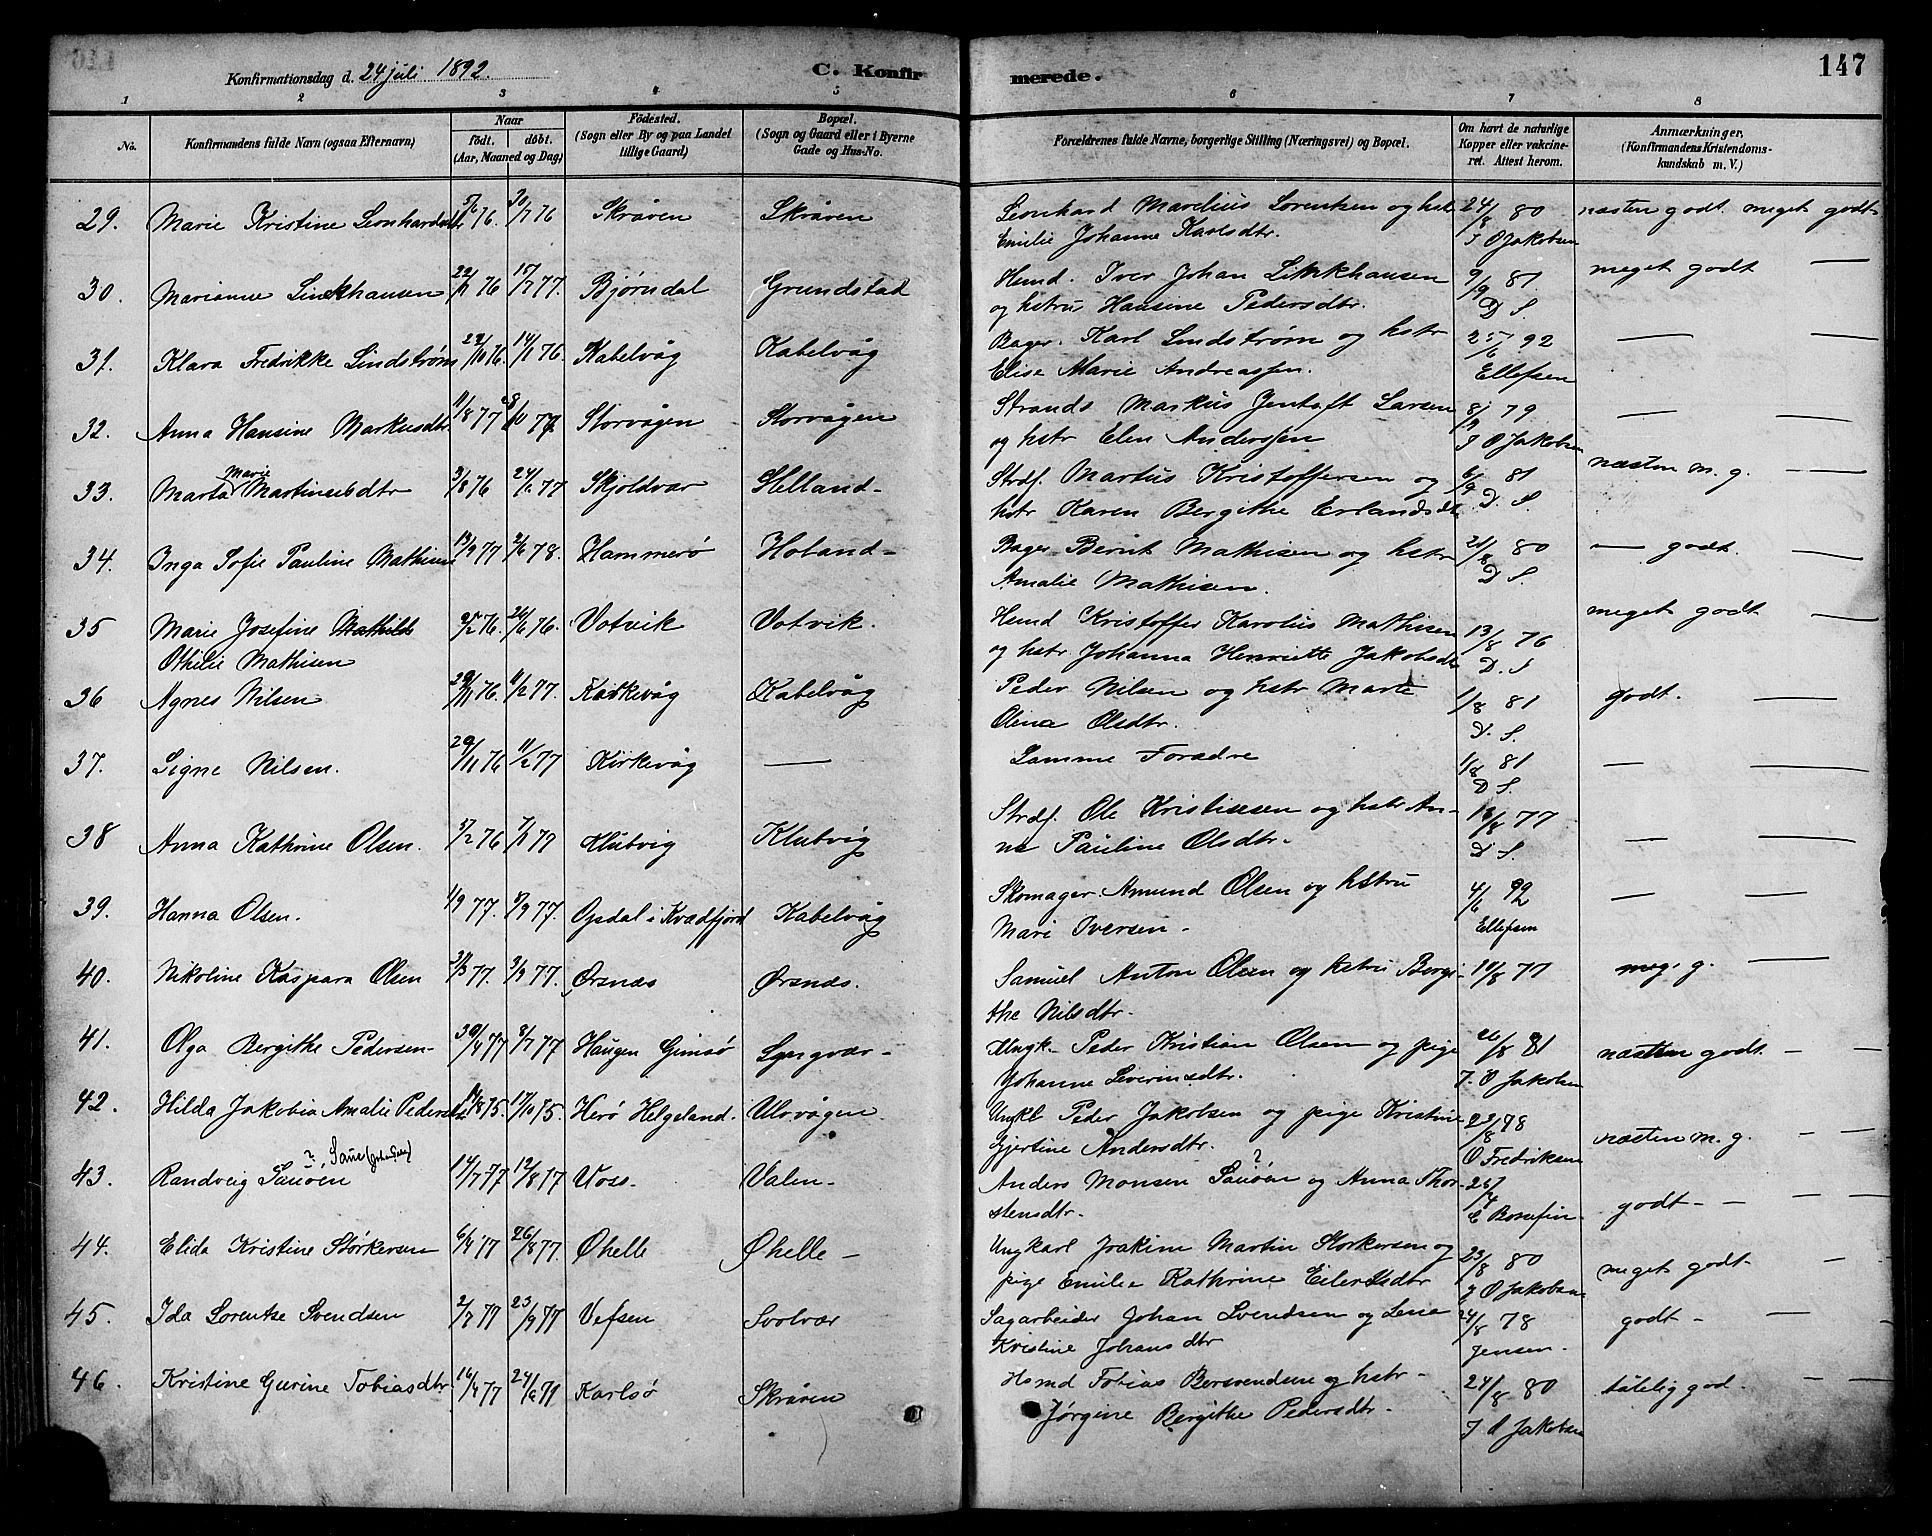 147
Konfirmationsdag d. 24 juli 1892.
C. Konfirmerede.
1 2 3 4 5 6 7 8
No.
Konfirmandens fulde Navn (ogsaa Efternavn)
Naar
født. døbt.
(Aar, Maaned og Dag)
Fødested.
(Sogn eller By og paa Landet tillige Gaard)
Bopæl.
(Sogn og Gaard eller i Byerne Gade og Hus-No.
Forældrenes fulde Navne, borgerlige Stilling (Næringsvei) og Bopæl.
Om havt de naturlige Kopper eller vakcineret. Attest herom.
Anmærkninger.
(Konfirmandens Kristendomskundskab m. V.)
29. Marie Kristine Leonhardsdtr 5/6 76. 30/7 76 Skråven Skråven Leonhard Marelius Lorentsen og hstr 24/8 80 næsten godt. meget godt
Emilie Johanne Karlsdtr. J O Jakobsen
30. Marianne Linckhausen 22/11 76 15/7 77. Bjørndal Grundstad Hmd. Iver Johan Linkhausen 9/9 81 meget godt —
og hstru Hansine Pedersdtr. D. S.
31. Klara Fredrikke Lindstrøm 22/10 76. 14/1 76. Kabelvåg Kabelvåg Bager. Karl Lindstrøm og hstr 25/6 92 — —
Elise Marie Andreassen. Ellefsen
32. Anna Hansine Markusdtr 11/8 77 28/10 77 Storvågen Storvågen Strands Markus Jentoft Larsen 8/9 79 — —
og hstr Elen Anderssen J O Jakobsen
33. Marta Marie Martinusdtr 3/8 76 24/6 77 Skjoldvær Helland- Strdf. Martus Kristoffersen og 6/9 81 næsten m. g. —
hstr Karen Bergithe Erlandsdtr. D. S.
34. Inga Sofie Pauline Mathisen 13/9 77 2/6 78. Hammerø Holand- Bager Bernt Mathisen og hstr 21/8 80 — godt. —
Amalie Mathisen. D. S.
35 Marie Josefine Mathilde 9/2 76. 26/6 76. Votvik Votvik. Hmd Kristoffer Karolus Mathisen 13/8 76 meget godt —
Othilie Mathisen og hstr Johanna Henriette Jakobsdtr D. S
36 Agnes Nilsen 29/11 76. 11/2 77. Kirkevåg Kabelvåg Peder Nilsen og hstr Marte 1/8 81 godt. —
Olina Olsdtr. D. S.
37. Signe Nilsen. 29/11 76 11/2 77 Kirkevåg — Samme Forædre 1/8 81 — —
D S.
38 Anna Kathrine Olsen. 5/2 76 7/1 77 Klubvig Klubvig Strdf. Ole Kristiansen og hstr An- 18/8 77 — —
na Pauline Olsdtr- D S.
39. Hanna Olsen. 1/9 77. 9/9 77. Opdal i Kvædfjord Kabelvåg Skomager. Amund Olsen og hstru 4/6 92 — —
Mari Iversen - Ellefsen
40. Nikoline Kaspara Olsen 21/3 77. 3/9 77. Ørsnæs Ørsnæs. Samuel Anton Olsen og hstru Bergi- 14/8 77 meg. g. —
the Nilsdtr-
41. Olga Bergithe Pedersen- 30/4 77 8/7 77 Haugen Gimsø Lyngvær- Ungk. Peder Kristian Olsen og pige 26/8 81 næsten godt. — —
Johanne Severinsdtr. J. O Jakobsen
42. Hilda Jakobia Amalie Pedersdtr 14/8 75. 17/10 75. Herø Helgeland. Ulvvågen Ungkl Peder Jakobsen og pige Kristine 23/8 78 næsten m. g. — —
Gjertine Andersdtr. O Fredriksen
43. Randveig Sauøen, ? Saue (Johansen) 14/7 77 12/8 77 Voss- Valen- Anders Monsen Sauøen ? og Anna Thor- godt- — —
stensdtr-
44. Elida Kristine Størkersen 6/4 77 26/8 77. Øhelle Øhelle- Ungkarl Joakim Martin Storkersen og 23/8 80 meget godt- —
pige Emilie Kathrine Eilertsdtr J O Jakobsen
45. Ida Lorentse Svendsen 2/7 77 23/9 77 Vefsen Svolvær Sagarbeider Johan Svendsen og Lena 24/8 78 godt- —
Kristine Johansdtr Jensen.
46. Kristine Gurine Tobiasdtr. 16/4 77 24/6 77 Karlsø Skråven Hsmd Tobias Bersvendsen og hstr- 24/8 80 tålelig god. — —
Jørgine Bergithe Pedersdtr- J O Jakobsen